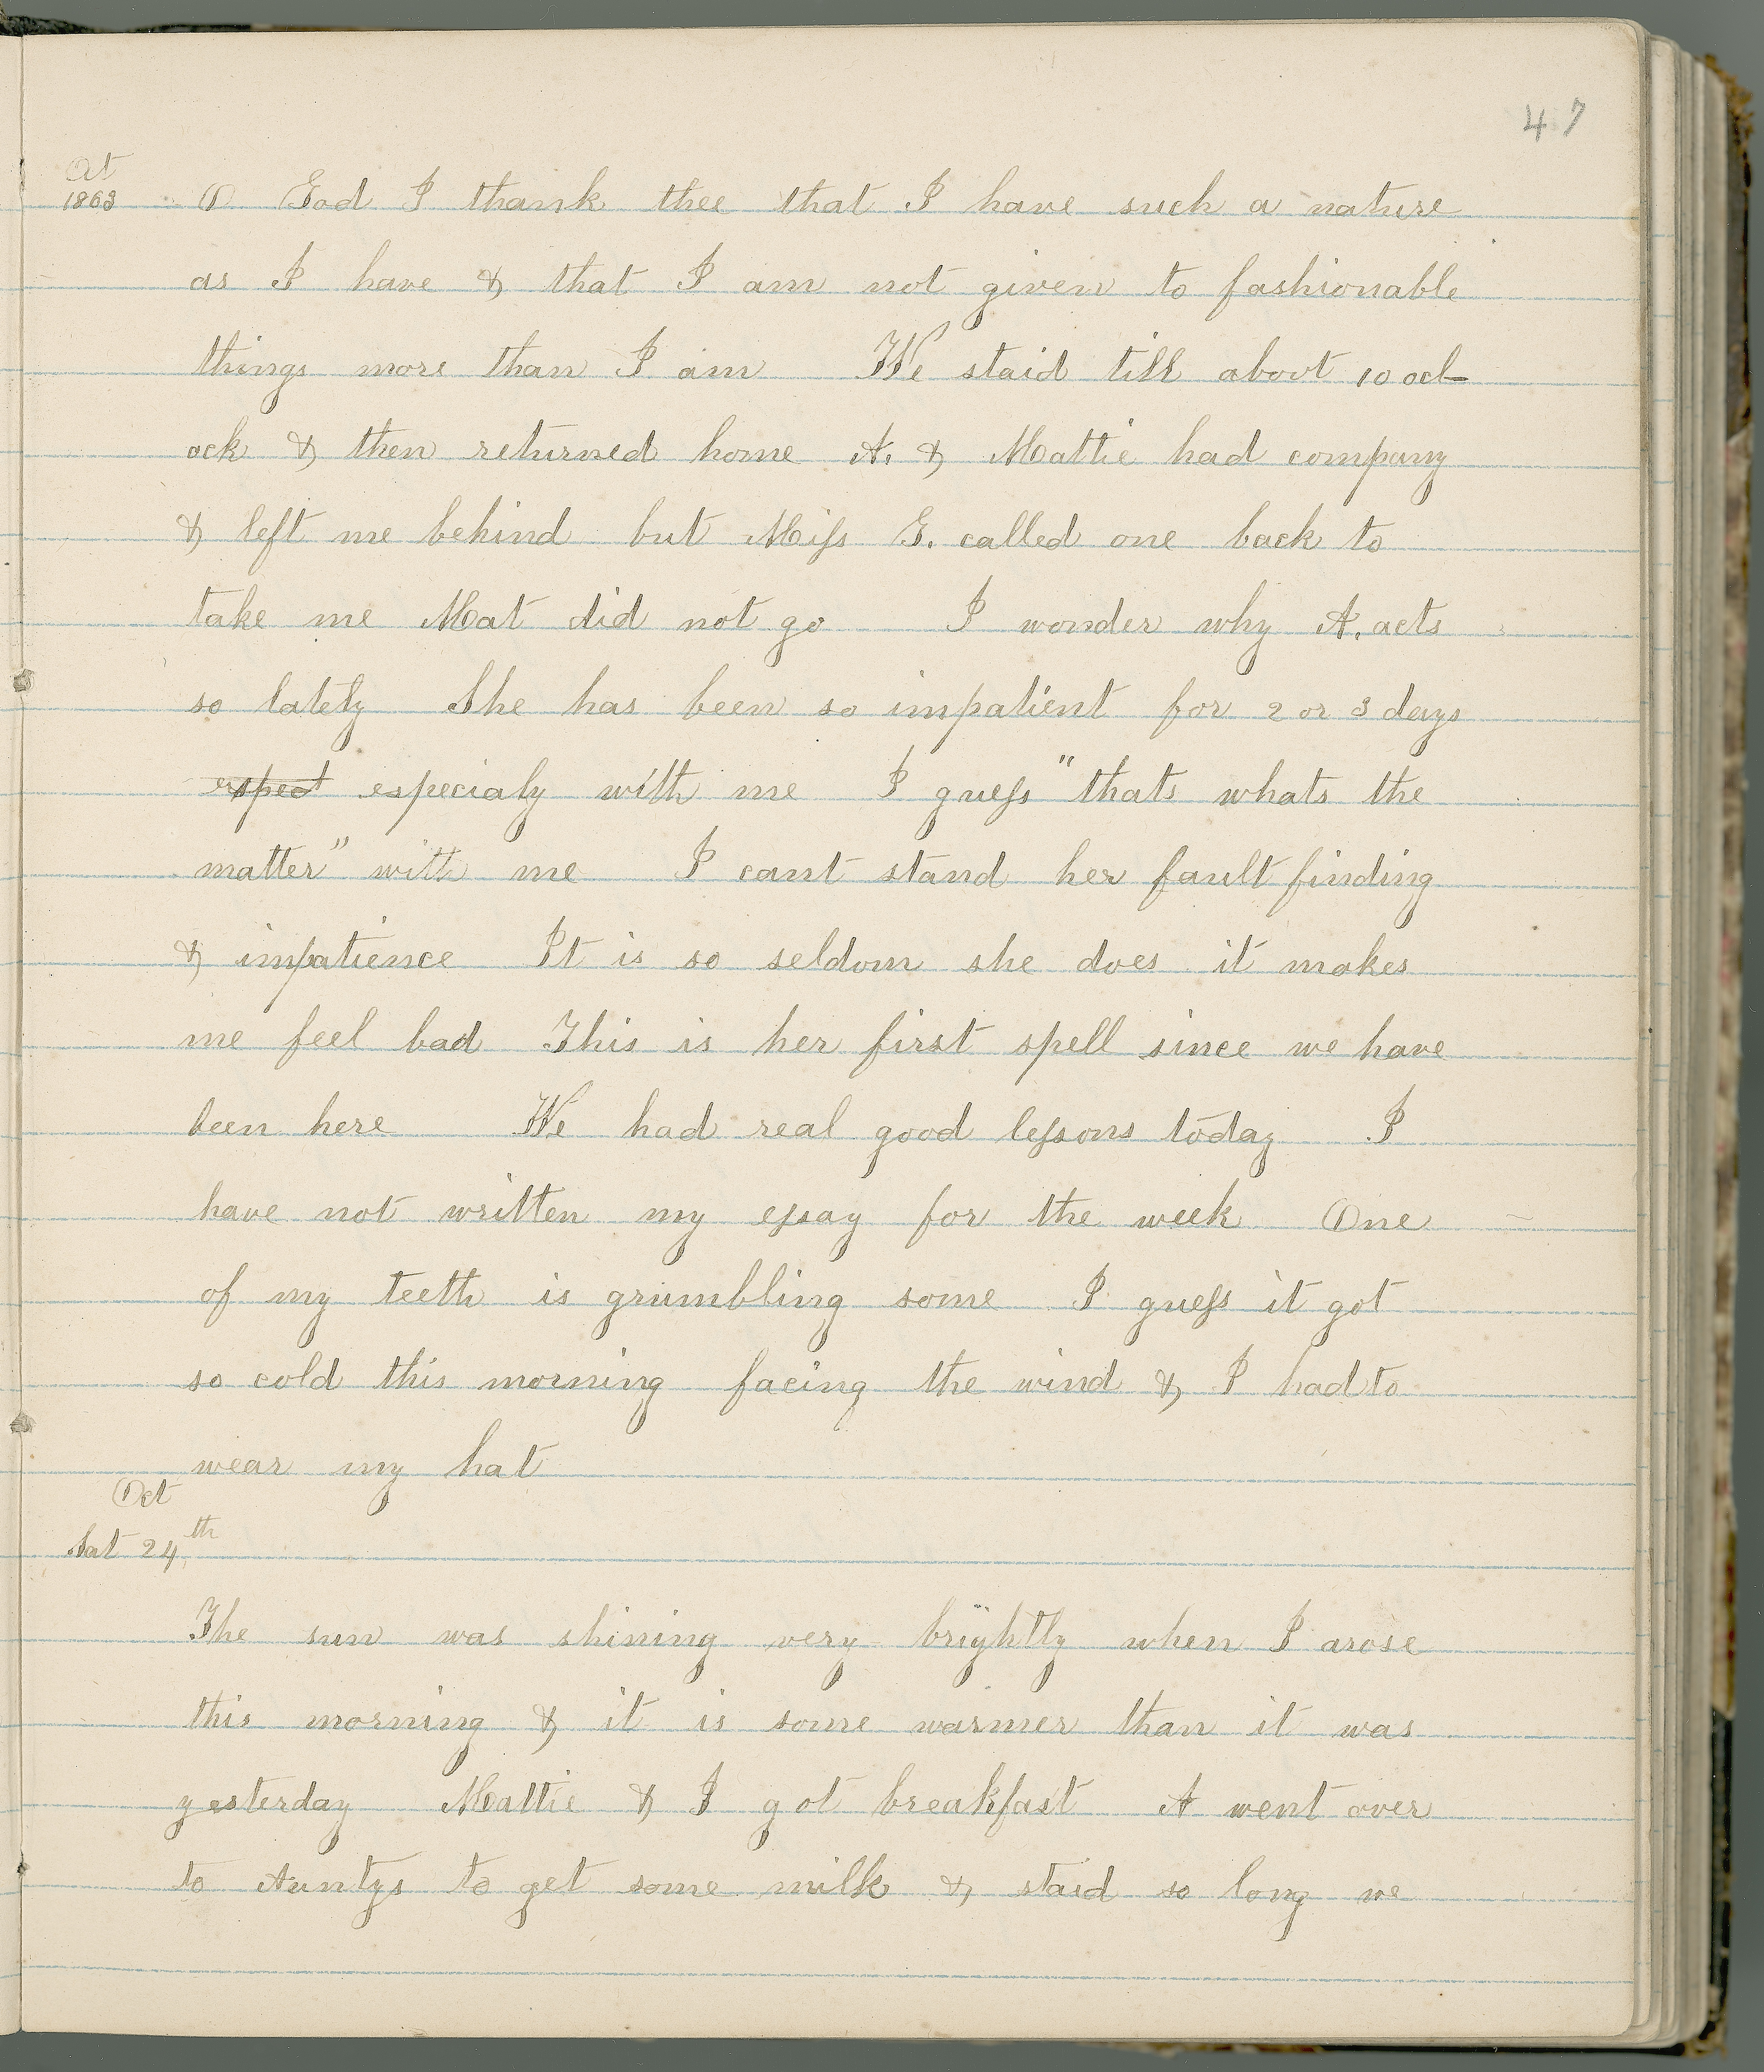 47
Oct
1863 O God I thank thee that I have such a nature
as I have & that I am not given to fashionable
things more than I am We staid till about 10 ocl-
ock & then returned home A. & Mattie had company
& left me behind but Miss G. called one back to
take me Mat did not go I wonder why A. acts
so lately She has been so impatient for 2 or 3 days
espect especialy with me I guess "thats whats the
matter" with me I cant stand her fault finding
& impatience It is so seldom she does it makes
me feel bad This is her first spell since we have
been here We had real good lessons today I
have not written my essay for the week One
of my teeth is grumbling some I guess it got
so cold this morning facing the wind & I had to
wear my hat
Oct
Sat 24th
The sun was shining very brightly when I arose
this morning & it is some warmer than it was
yesterday Mattie & I got breakfast A went over
to Auntys to get some milk & staid so long we